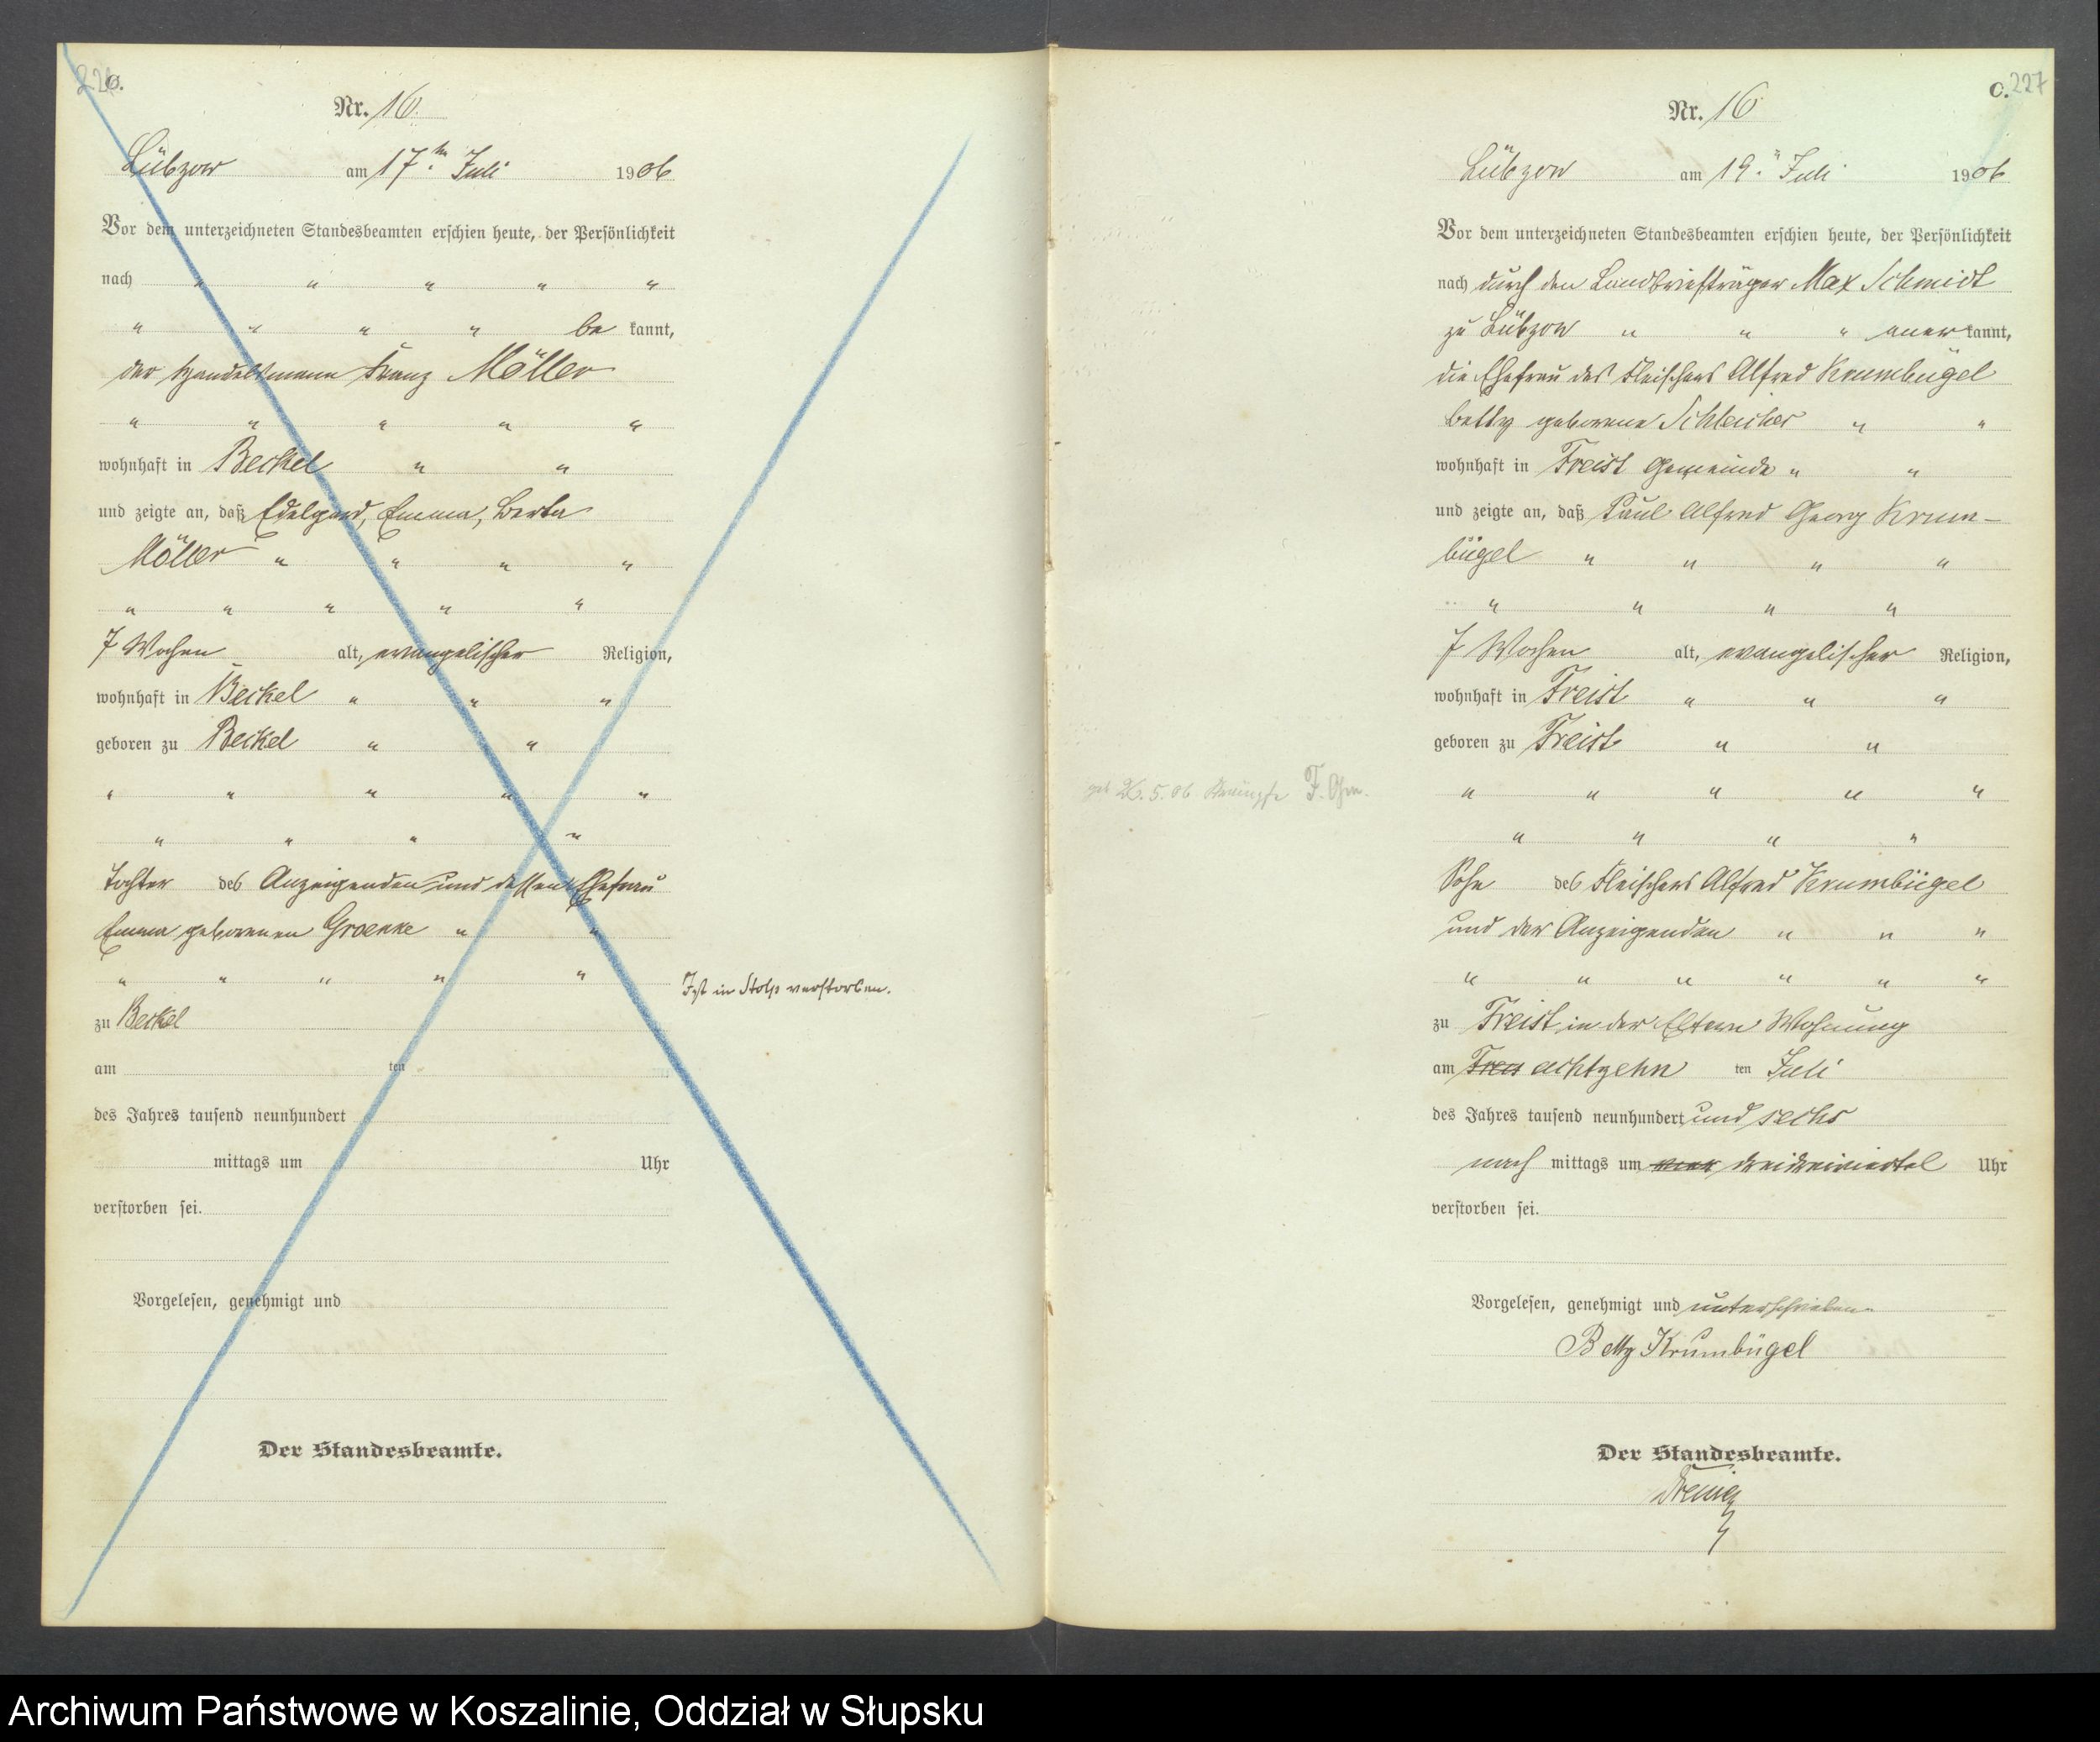 C.
Nr. 16.
Lübzow am 17ten Juli 1906
Vor dem unterzeichneten Standesbeamten erschien heute, der Persönlichkeit
nach " " " " "
" " " " be kannt,
der Handelsmann Franz Möller
" " " " "
wohnhaft in Beckel " "
und zeigte an, daß Edelgard, Emma, Berta
Möller " " " "
" " " " "
7 Wochen alt, evangelischer Religion,
wohnhaft in Beckel " " "
geboren zu Beckel " "
" " " " "
" " " "
Tochter des Anzeigenden und dessen Ehefrau
Emma geborenen Groenke " "
" " " " "
Ist in Stolp verstorben.
zu Beckel
am ten
des Jahres tausend neunhundert
mittags um Uhr
verstorben sei.
Vorgelesen, genehmigt und
Der Standesbeamte.
C. 227
Nr. 16
Lübzow am 19. Juli 1906
Vor dem unterzeichneten Standesbeamten erschien heute, der Persönlichkeit
nach durch den Landbriefträger Max Schmidt
zu Lübzow " " " aner kannt,
die Ehefrau des Fleischers Alfred Krumbügel
Betty geborene Schleicher " "
wohnhaft in Freist Gemeinde " "
und zeigte an, daß Paul Alfred Georg Krum-
bügel " " " "
" " " "
7 Wochen alt, evangelischer Religion,
wohnhaft in Freist " " "
geboren zu Freist " "
geb 26.5.06
" " " " "
" " " "
Sohn des Fleischers Alfred Krumbügel
und der Anzeigenden " " "
" " " " " "
zu Freist in der Eltern Wohnung
am Freis achtzehn ten Juli
des Jahres tausend neunhundert und sechs
nach mittags um vier dreidreiviertel Uhr
verstorben sei.
Vorgelesen, genehmigt und unterschrieben
Betty Krumbügel
Der Standesbeamte.
Archiwum Państwowe w Koszalinie, Oddział w Słupsku